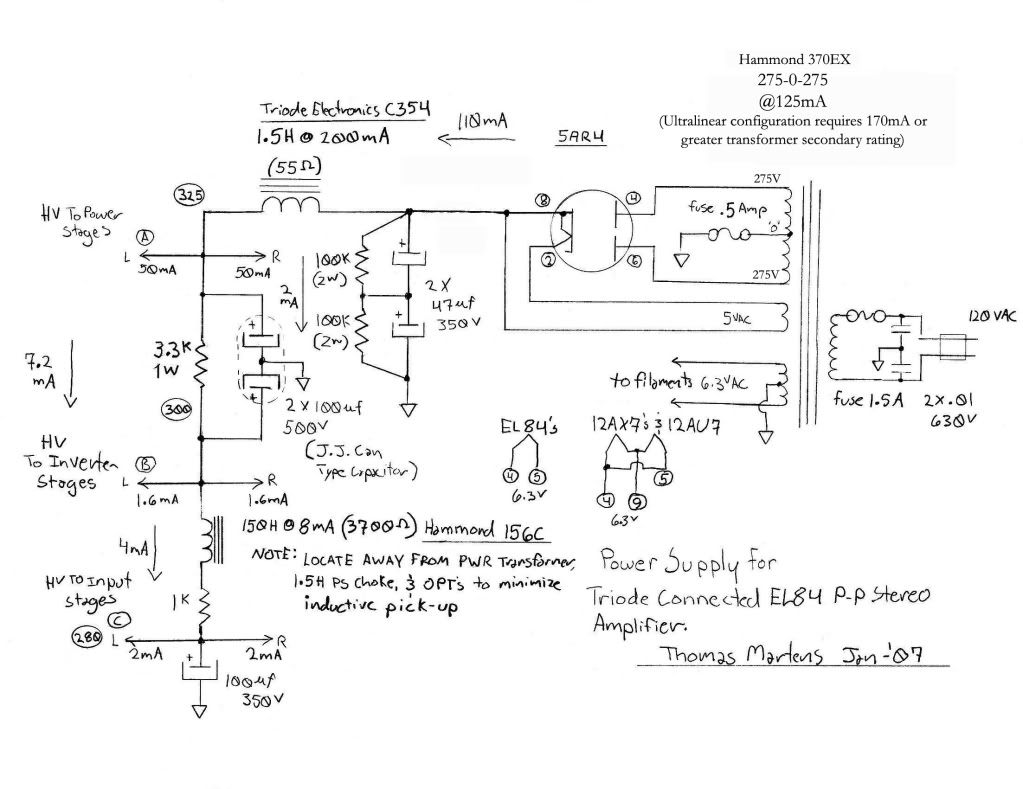 Hammond 370EX
275-0-275
@125mA
(Ultralinear configuration requires 170mA or
greater transformer secondary rating)
Triode Electronics C354
1.5H @ 200mA
(55Ω)
110mA
5AR4
325
HV To Power
Stages
A
L
R
50mA
50mA
2
mA
100K
(2w)
100K
(2w)
+
+
2 X
47uf
350V
8
2
4
6
275V
fuse .5 Amp
'0'
275V
5VAC
120VAC
fuse 1.5A
2x.01
630V
to filaments 6.3VAC
7.2
mA
3.3K
1W
+
+
300
2 X 100uf
500V
(J.J. Can
Type Capacitor)
EL84's
4
5
6.3V
12AX7's & 12AU7
4
9
5
6.3V
HV
To Inverter
Stages
B
L
R
1.6mA
1.6mA
150H @ 8mA (3700Ω) Hammond 156C
NOTE: LOCATE AWAY FROM PWR Transformer,
1.5H PS choke, & OPT's to minimize
inductive pick-up
4mA
1K
HV TO Input
stages
C
280
L
R
2mA
2mA
+
100uf
350V
Power Supply for
Triode Connected EL84 P-P Stereo
Amplifier.
Thomas Martens Jan-'07